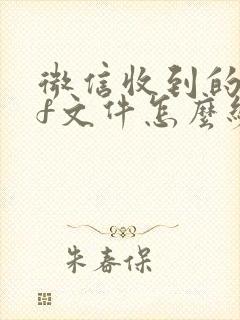 微信收到的
f文件怎麼
朱春保